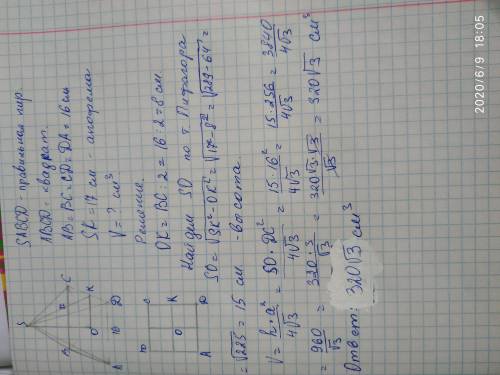 SABCD - правильная пир.
ABCD - квадрат.
AB = BC = CD = DA = 16 см
SK = 17 см - апофема
V = ? см³
Решение.
OK = BC : 2 = 16 : 2 = 8 см.
Найдем SO по т. Пифагора
SO = √SK² - OK² = √17² - 8² = √289 - 64 =
= √225 = 15 см. - высота
V = h · a² / 4√3 = SO · DC² / 4√3 = 15 · 16² / 4√3 = 15 · 256 / 4√3 = 3840 / 4√3
= 960 / √3 = 320 · 3 / √3 = 320√3 · √3 / √3 = 320√3 см³
Ответ: 320√3 см³
S
B
C
K
O
A
D
B
C
O
K
A
D
2020/6/9 18:05